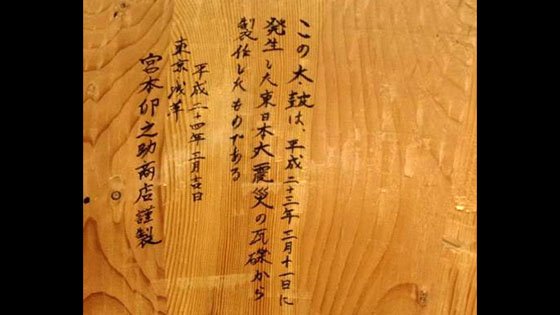 この太鼓は、平成二十三年三月十一日に
発生した東日本大震災の瓦礫から
製作したものである
平成二十四年三月吉日
東京浅草
宮本卯之助商店謹製